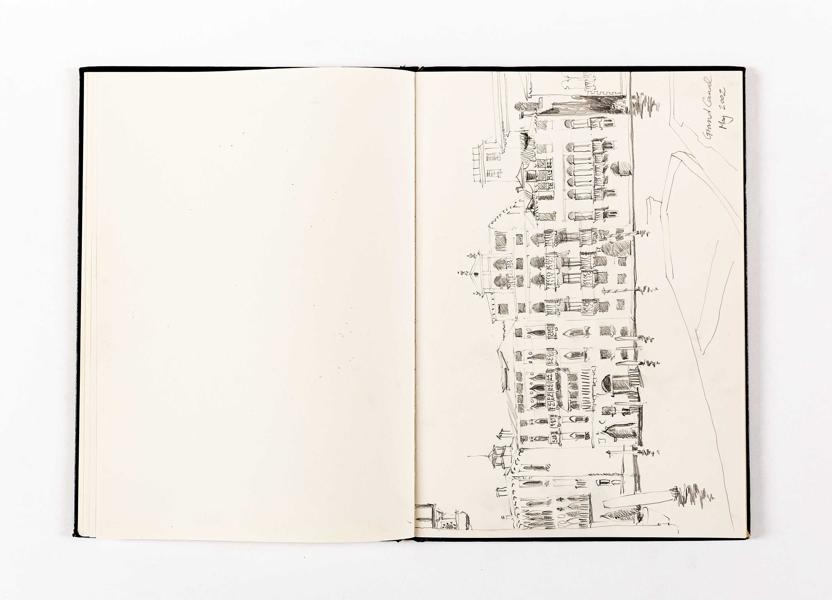 Grand Canal
May 2002